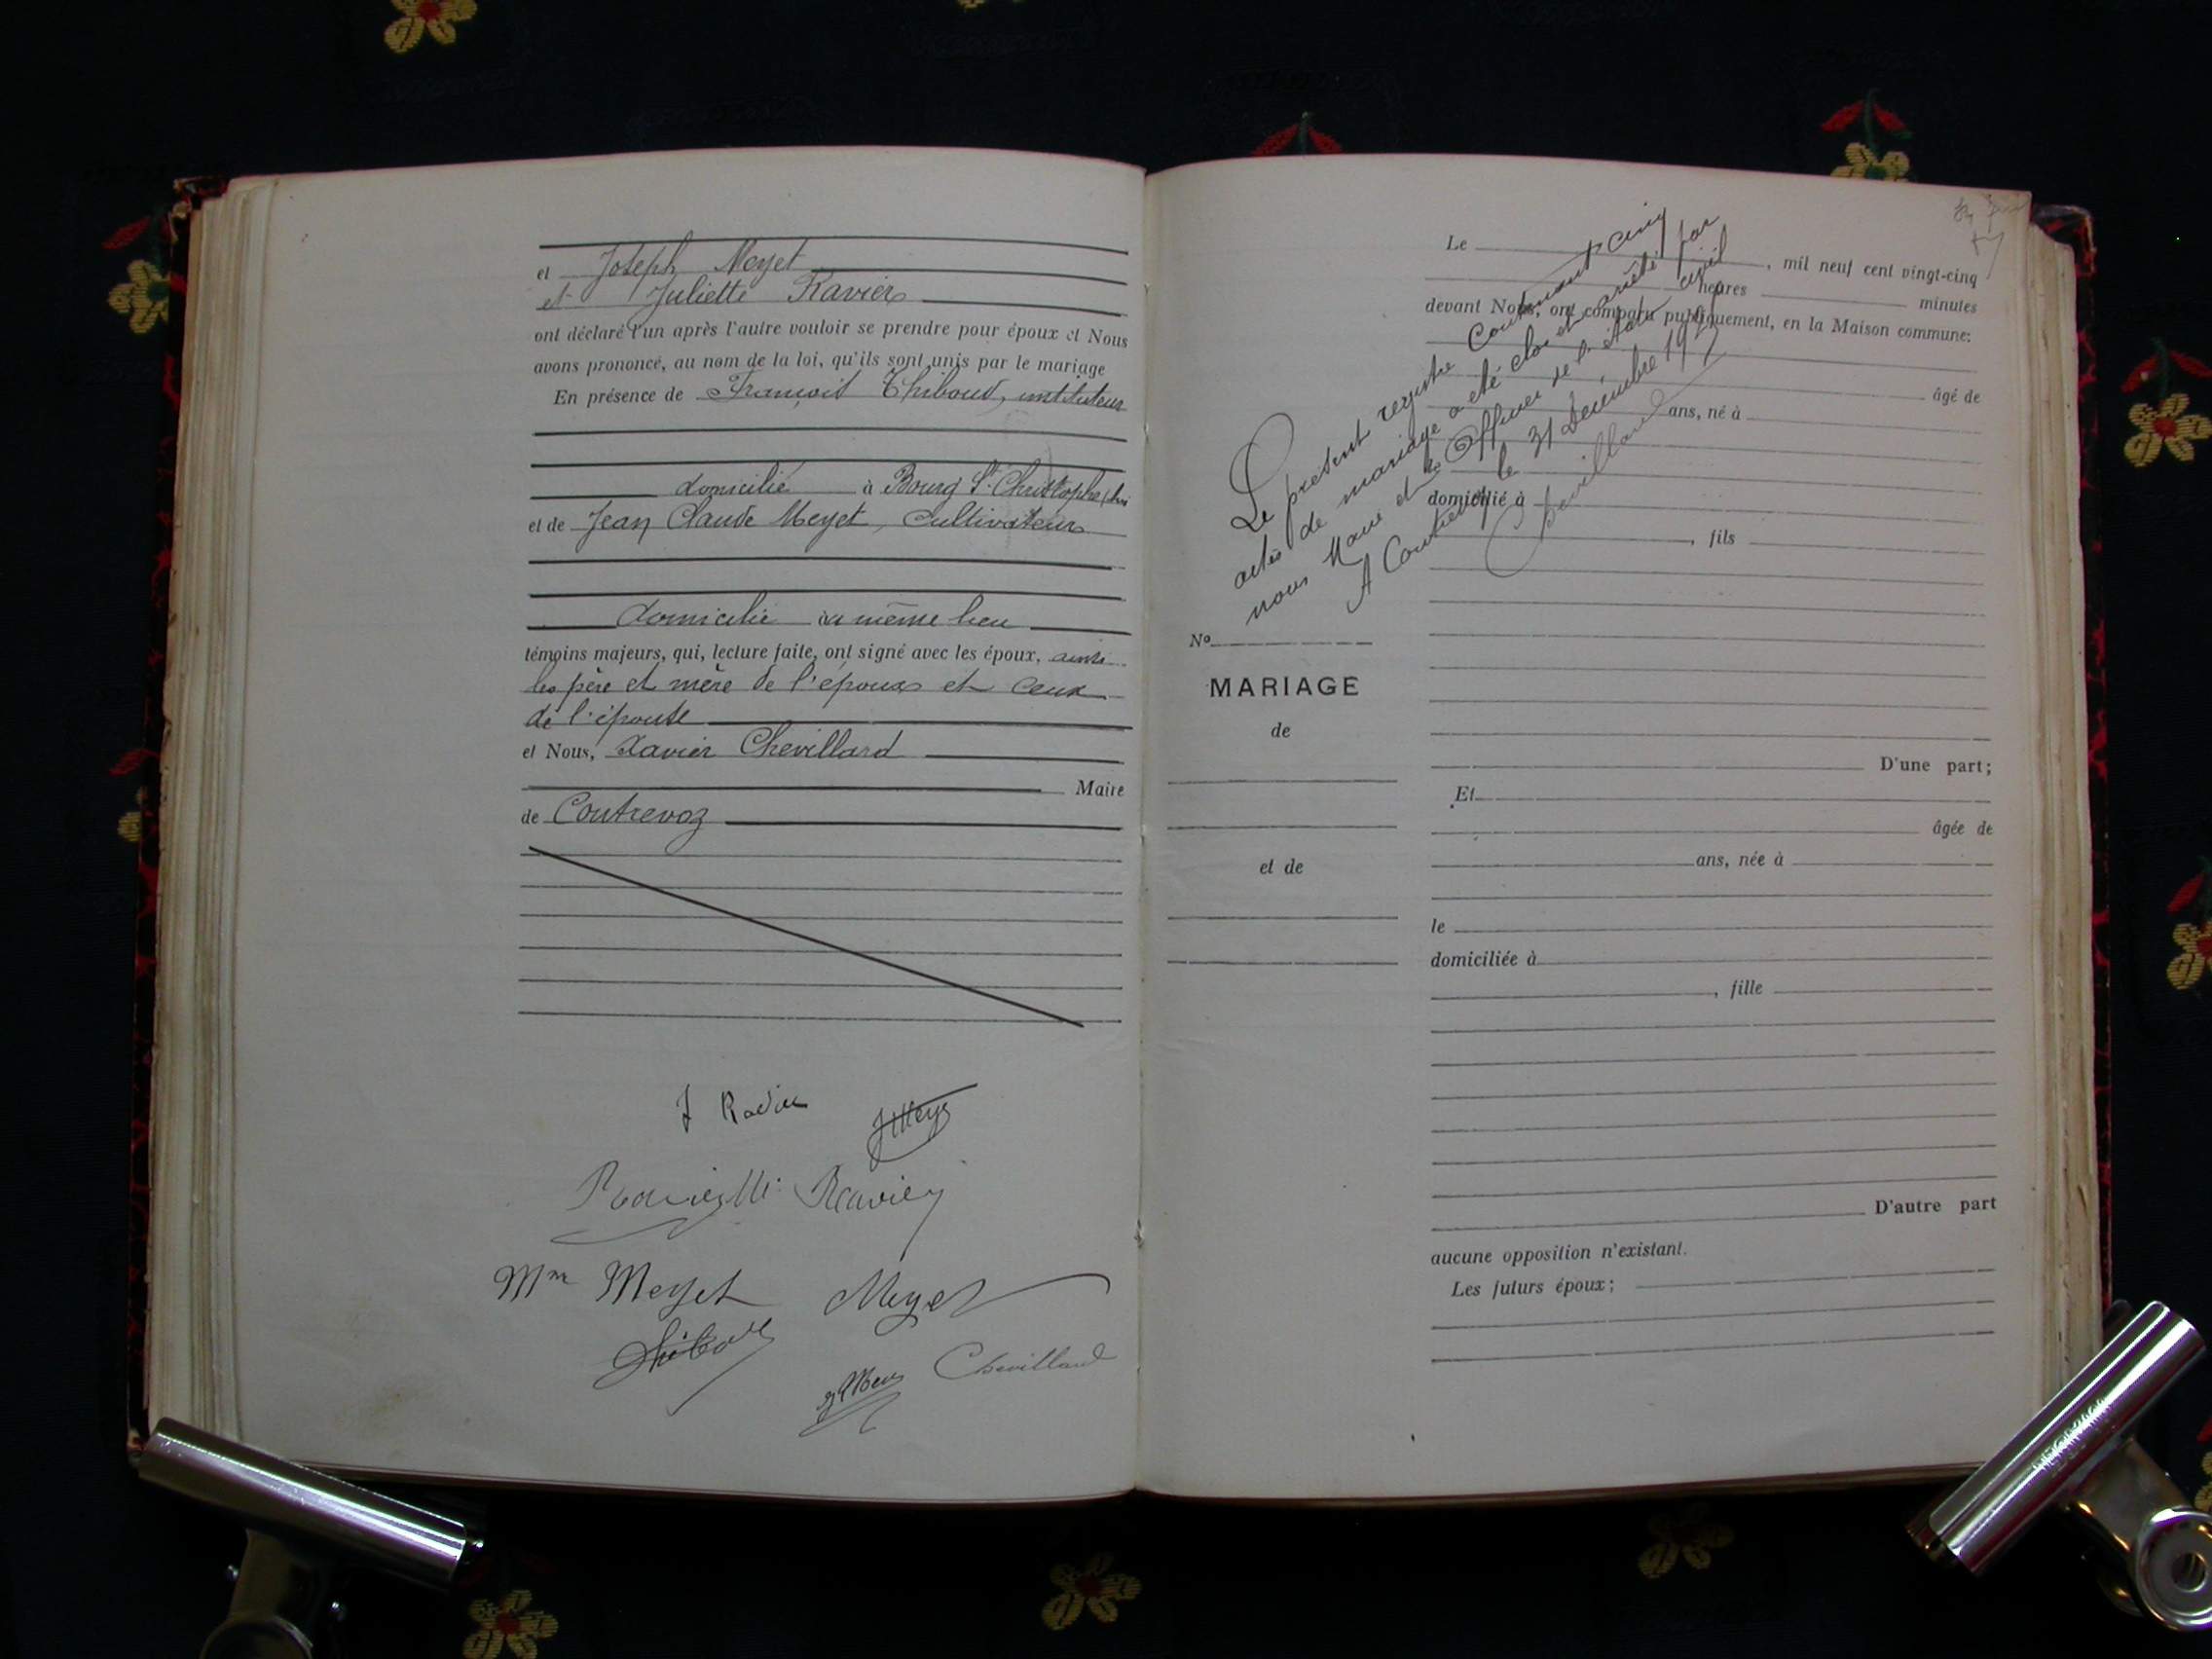 et Joseph Meyet
et Juliette Ravier
ont déclaré l'un après l'autre vouloir se prendre pour époux et Nous
avons prononcé, au nom de la loi, qu'ils sont unis par le mariage
En présence de François Thiboud, instituteur
domicilié à Bourg St Christophe
et de Jean Claude Meyet, Cultivateur
domicilié au même lieu
témoins majeurs, qui, lecture faite, ont signé avec les époux, ainsi
les père et mère de l'époux et ceux
de l'épouse
et Nous, Xavier Chevillard
Maire
de Contrevoz
J Ravier
Ravier
Mme Meyet Meyet
Chevillard
Le présent registre Contenant cinq
actes de mariage a été clos et arrêté par
nous Maire et Officier de l'état civil
A Contrevoz le 31 Décembre 192
Chevillard
Le , mil neuf cent vingt-cinq
heures minutes
devant Nous, ont comparu publiquement, en la Maison commune:
âgé de
ans, né à
domicilié à
, fils
No
MARIAGE
de
et de
D'une part;
Et
âgée de
ans, née à
le
domiciliée à
, fille
D'autre part
aucune opposition n'existant.
Les futurs époux;